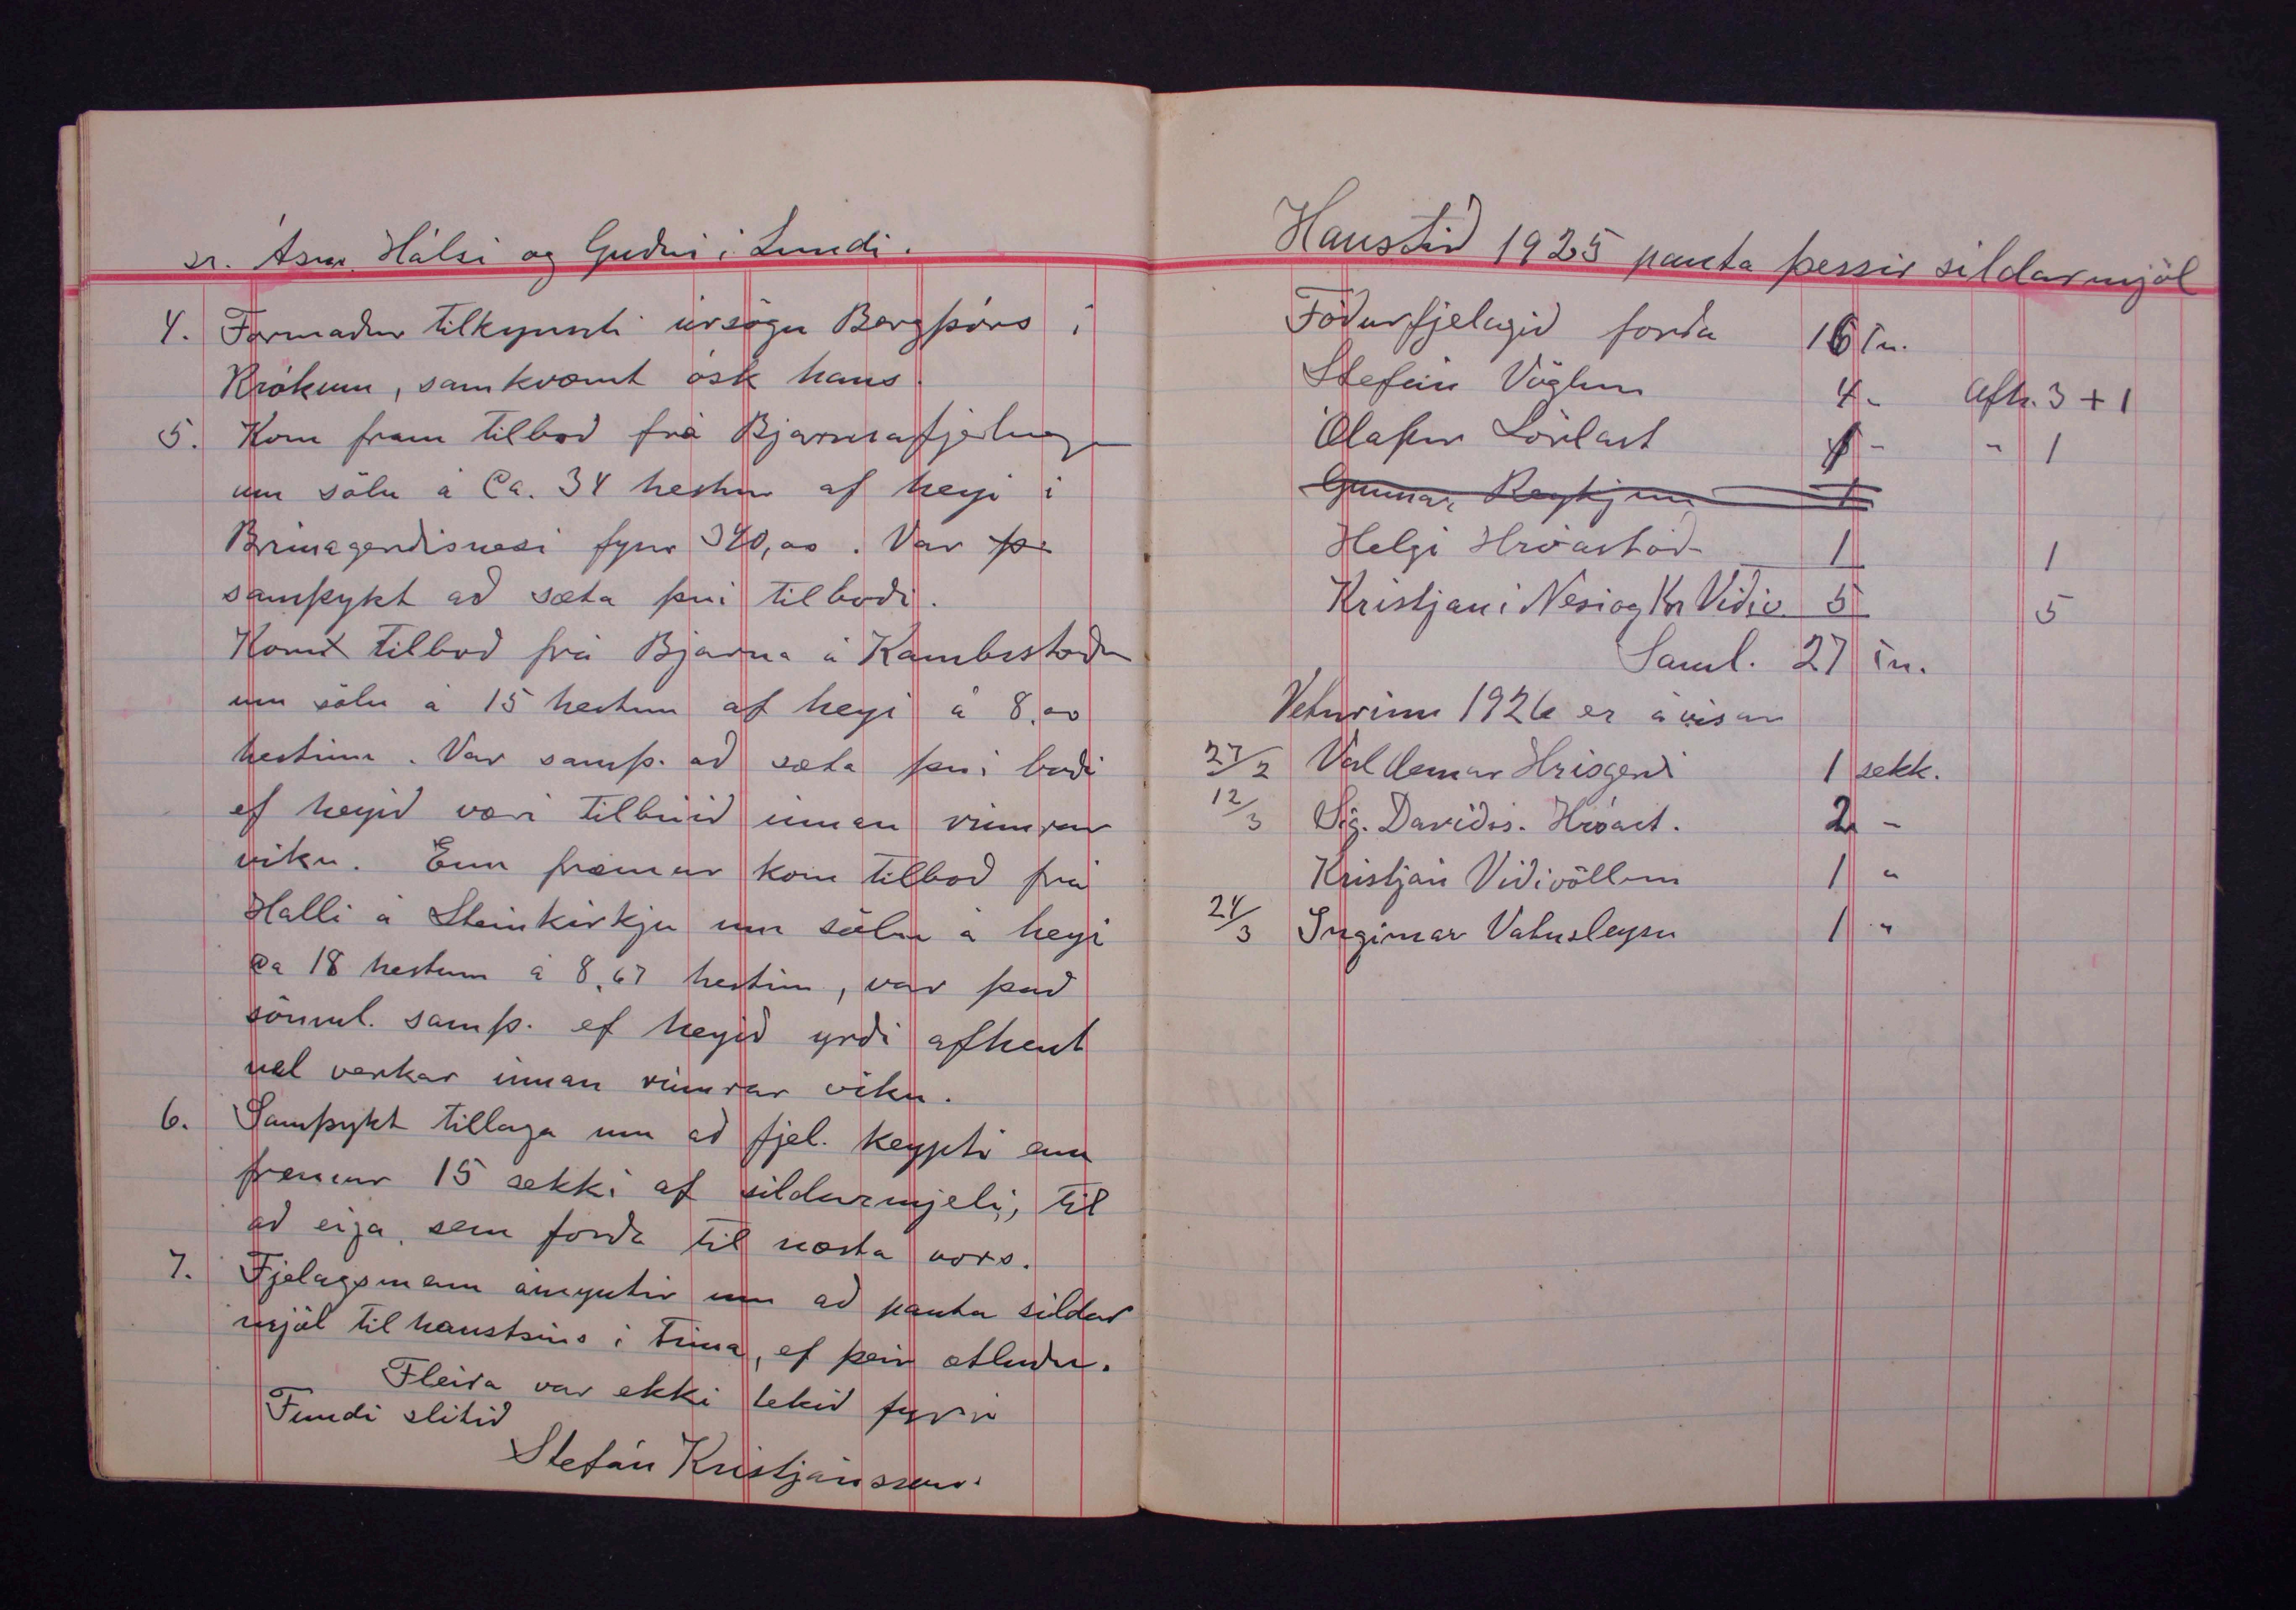 sr. Ásm. Hálsi og Guðni í Lundi.
4. Formaður tilkynnti úrsögn Bergþórs í
Krókum, samkvæmt ósk hans.
5. Kom fram tilboð frá Bjarmafjelagi
um sölu á Ca. 34 hestum af heyi í
Brúnagerðisnesi fyrir 340,00. Var þ
samþykt að sæta því tilboði.
Komx tilboð frá Bjarna á Kambsstöðu
um sölu á 15 hestum af heyi á 8,00
hestinn. Var samþ. að sæta því boði
ef heyið væri tilbúið innan rúmrar
viku. Enn fremur kom tilboð frá
Halli á Steinkirkju um sölu á heyi
Ca 18 hestum á 8,67 hestinn, var það
sömul. samþ. ef heyið yrði afhent
vel verkað innan rúmrar viku.
6. Samþykt tillaga um að fjel. keypti enn
fremur 15 sekki af síldarmjeli, til
að eiga sem forða til næsta vors.
7. Fjelagsmenn ámyntir um að panta síldar
mjöl til haustsins í tíma, ef þeir ætluðu.
Fleira var ekki tekið fyrir
Fundi slitið
Stefán Kristjánsson.
Haustið 1925 panta þessir síldarmjöl
Fóðurfjelagið forða 16 tn.
Stefán Vöglum 4 - Afh. 3 + 1
Ólafur Sörlast 1 - " 1
Gunnar Reykjum 1
Helgi Hróastöð- 1 1
Kristján í Nesi og Kr Víðiv 5 5
Saml. 27 tn.
Veturinn 1926 er ávísan
27/2 Valdemar Hrísgerði 1 sekk.
12/3 Sig. Davíðs. Hróast. 2 -
Kristján Víðivöllum 1 "
24/3 Ingimar Vatnsleysu 1 "